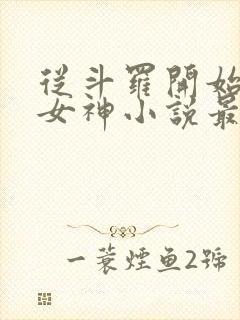 從斗羅開始
女神小說最
一蓑煙魚2號